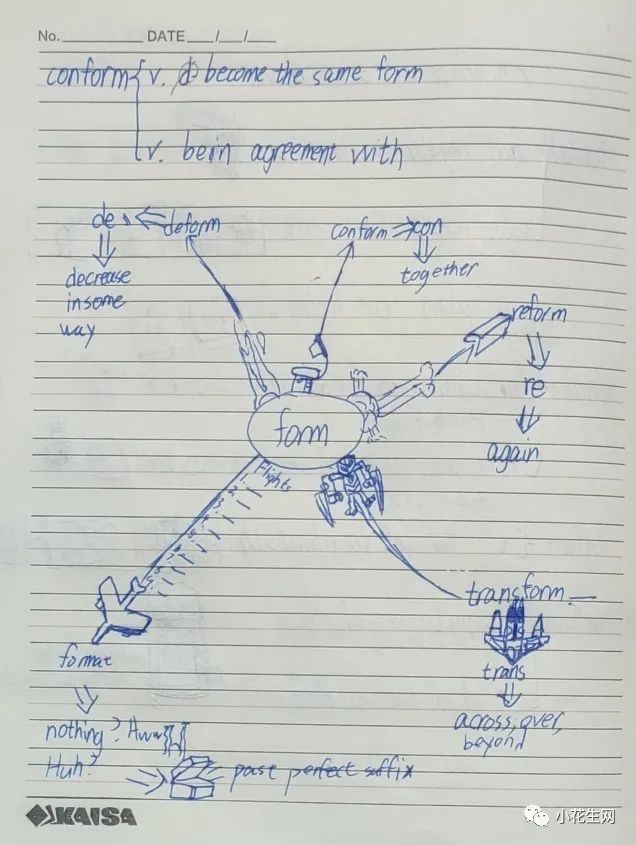 No. DATE / /
conform { v. become the same form
v. bein agreement with
de ⇐ deform
conform ⇒ con
decrease
in some
way
together
reform
re
again
form
Flights
transform
A A
trans
across, over,
beyond
format
nothing? Hww
Huh?
past perfect suffix
KAISA
小花生网